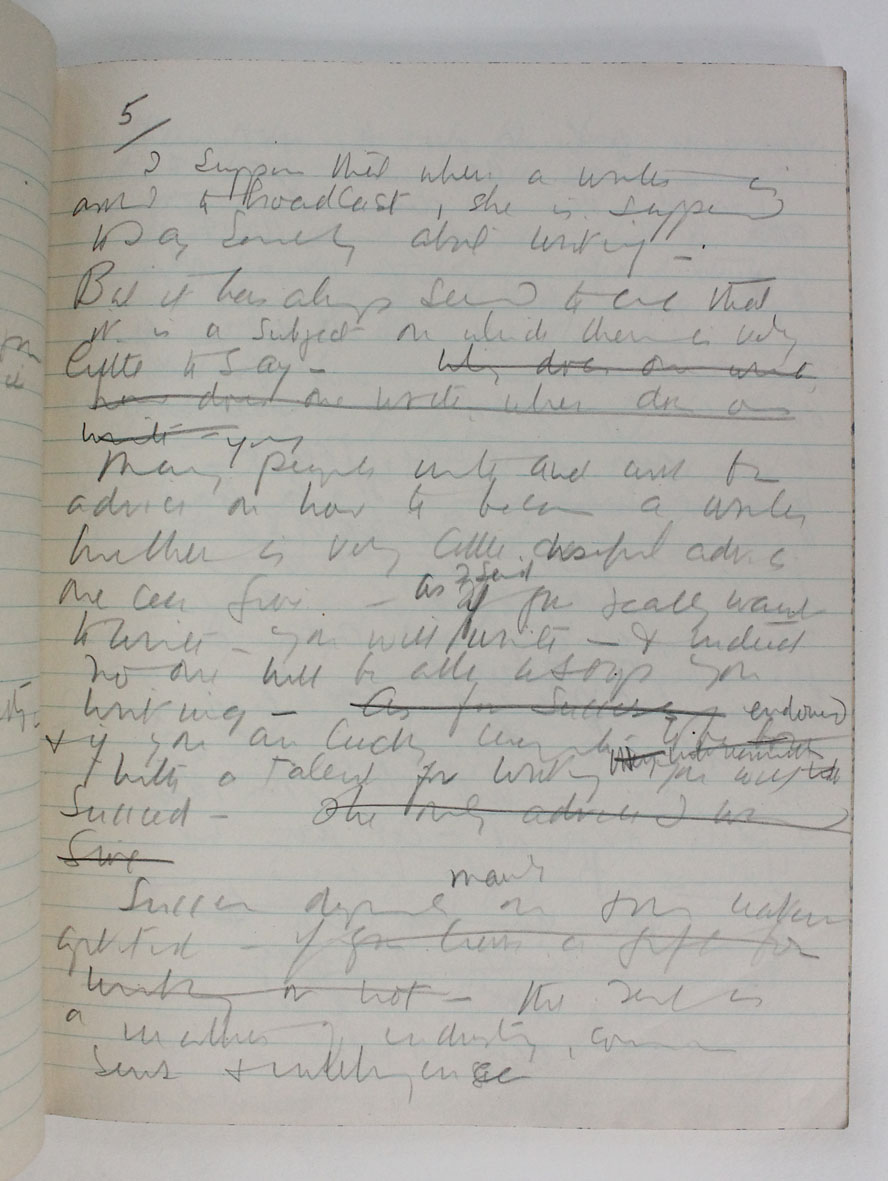 5/
I suppose that when a writer is
asked to broadcast, she is supposed
to say something about writing -.
But it has always seemed to me that
it is a subject on which there is very
little to say - Why does one write,
how does one write, when does one
write -
Many people write and ask for
advice on how to become a writer
but there is very little useful advice
one can give - as I said if you really want
to write - you will write - & indeed
no one will be able to stop you
writing - As for success, endowed
& if you are lucky enough to be
with a talent for writing you will
succeed - The only advice I can
Give
Success depends mainly on
- if you have a gift for
writing or not - the rest is
a matter of industry, common
sense & intelligence